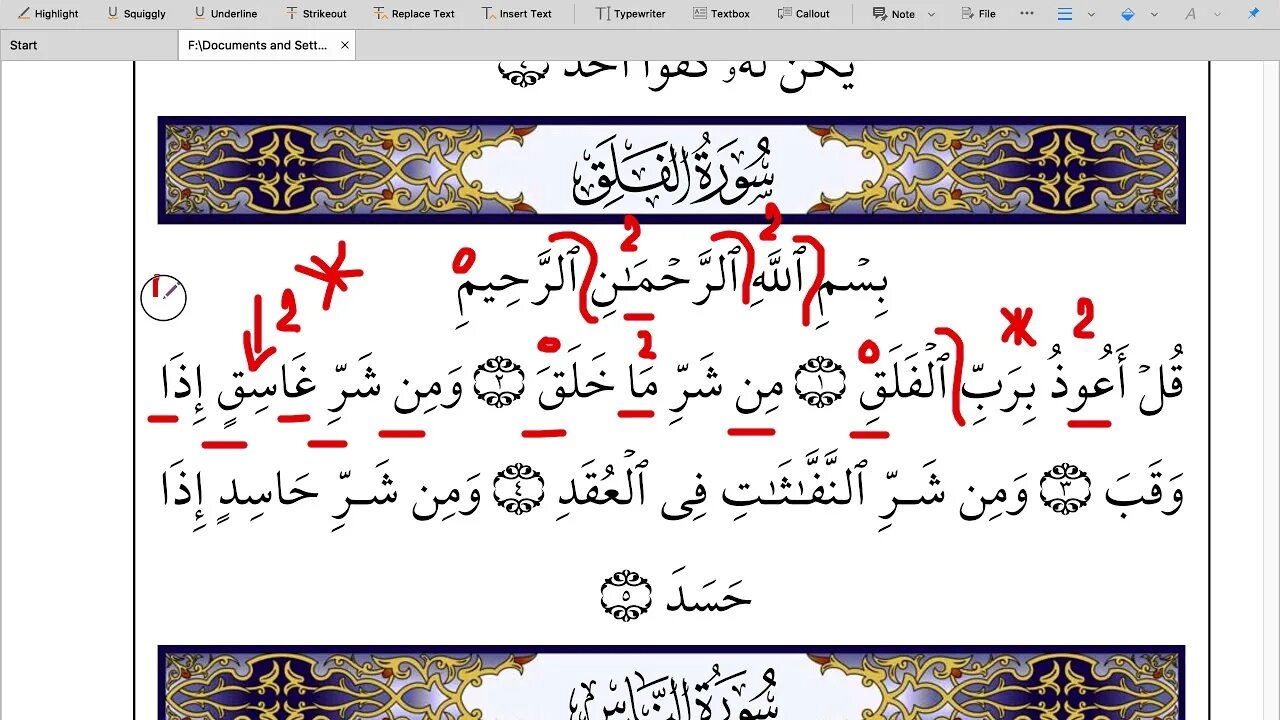 Highlight Squiggly Underline Strikeout Replace Text Insert Text Typewriter Textbox Callout Note File
Start F:\Documents and Sett...
يَكُن لَّهُۥ كُفُوًا أَحَدٌ ٤
سُورَةُ الفَلَقِ
2 2
بِسْمِ ٱللَّهِ ٱلرَّحْمَـٰنِ ٱلرَّحِيمِ
2 2 2
قُلْ أَعُوذُ بِرَبِّ ٱلْفَلَقِ ١ مِن شَرِّ مَا خَلَقَ ٢ وَمِن شَرِّ غَاسِقٍ إِذَا
وَقَبَ ٣ وَمِن شَـرِّ ٱلنَّفَّـٰثَـٰتِ فِى ٱلْعُقَدِ ٤ وَمِن شَـرِّ حَاسِدٍ إِذَا
حَسَدَ ٥
سُورَةُ النَّاسِ